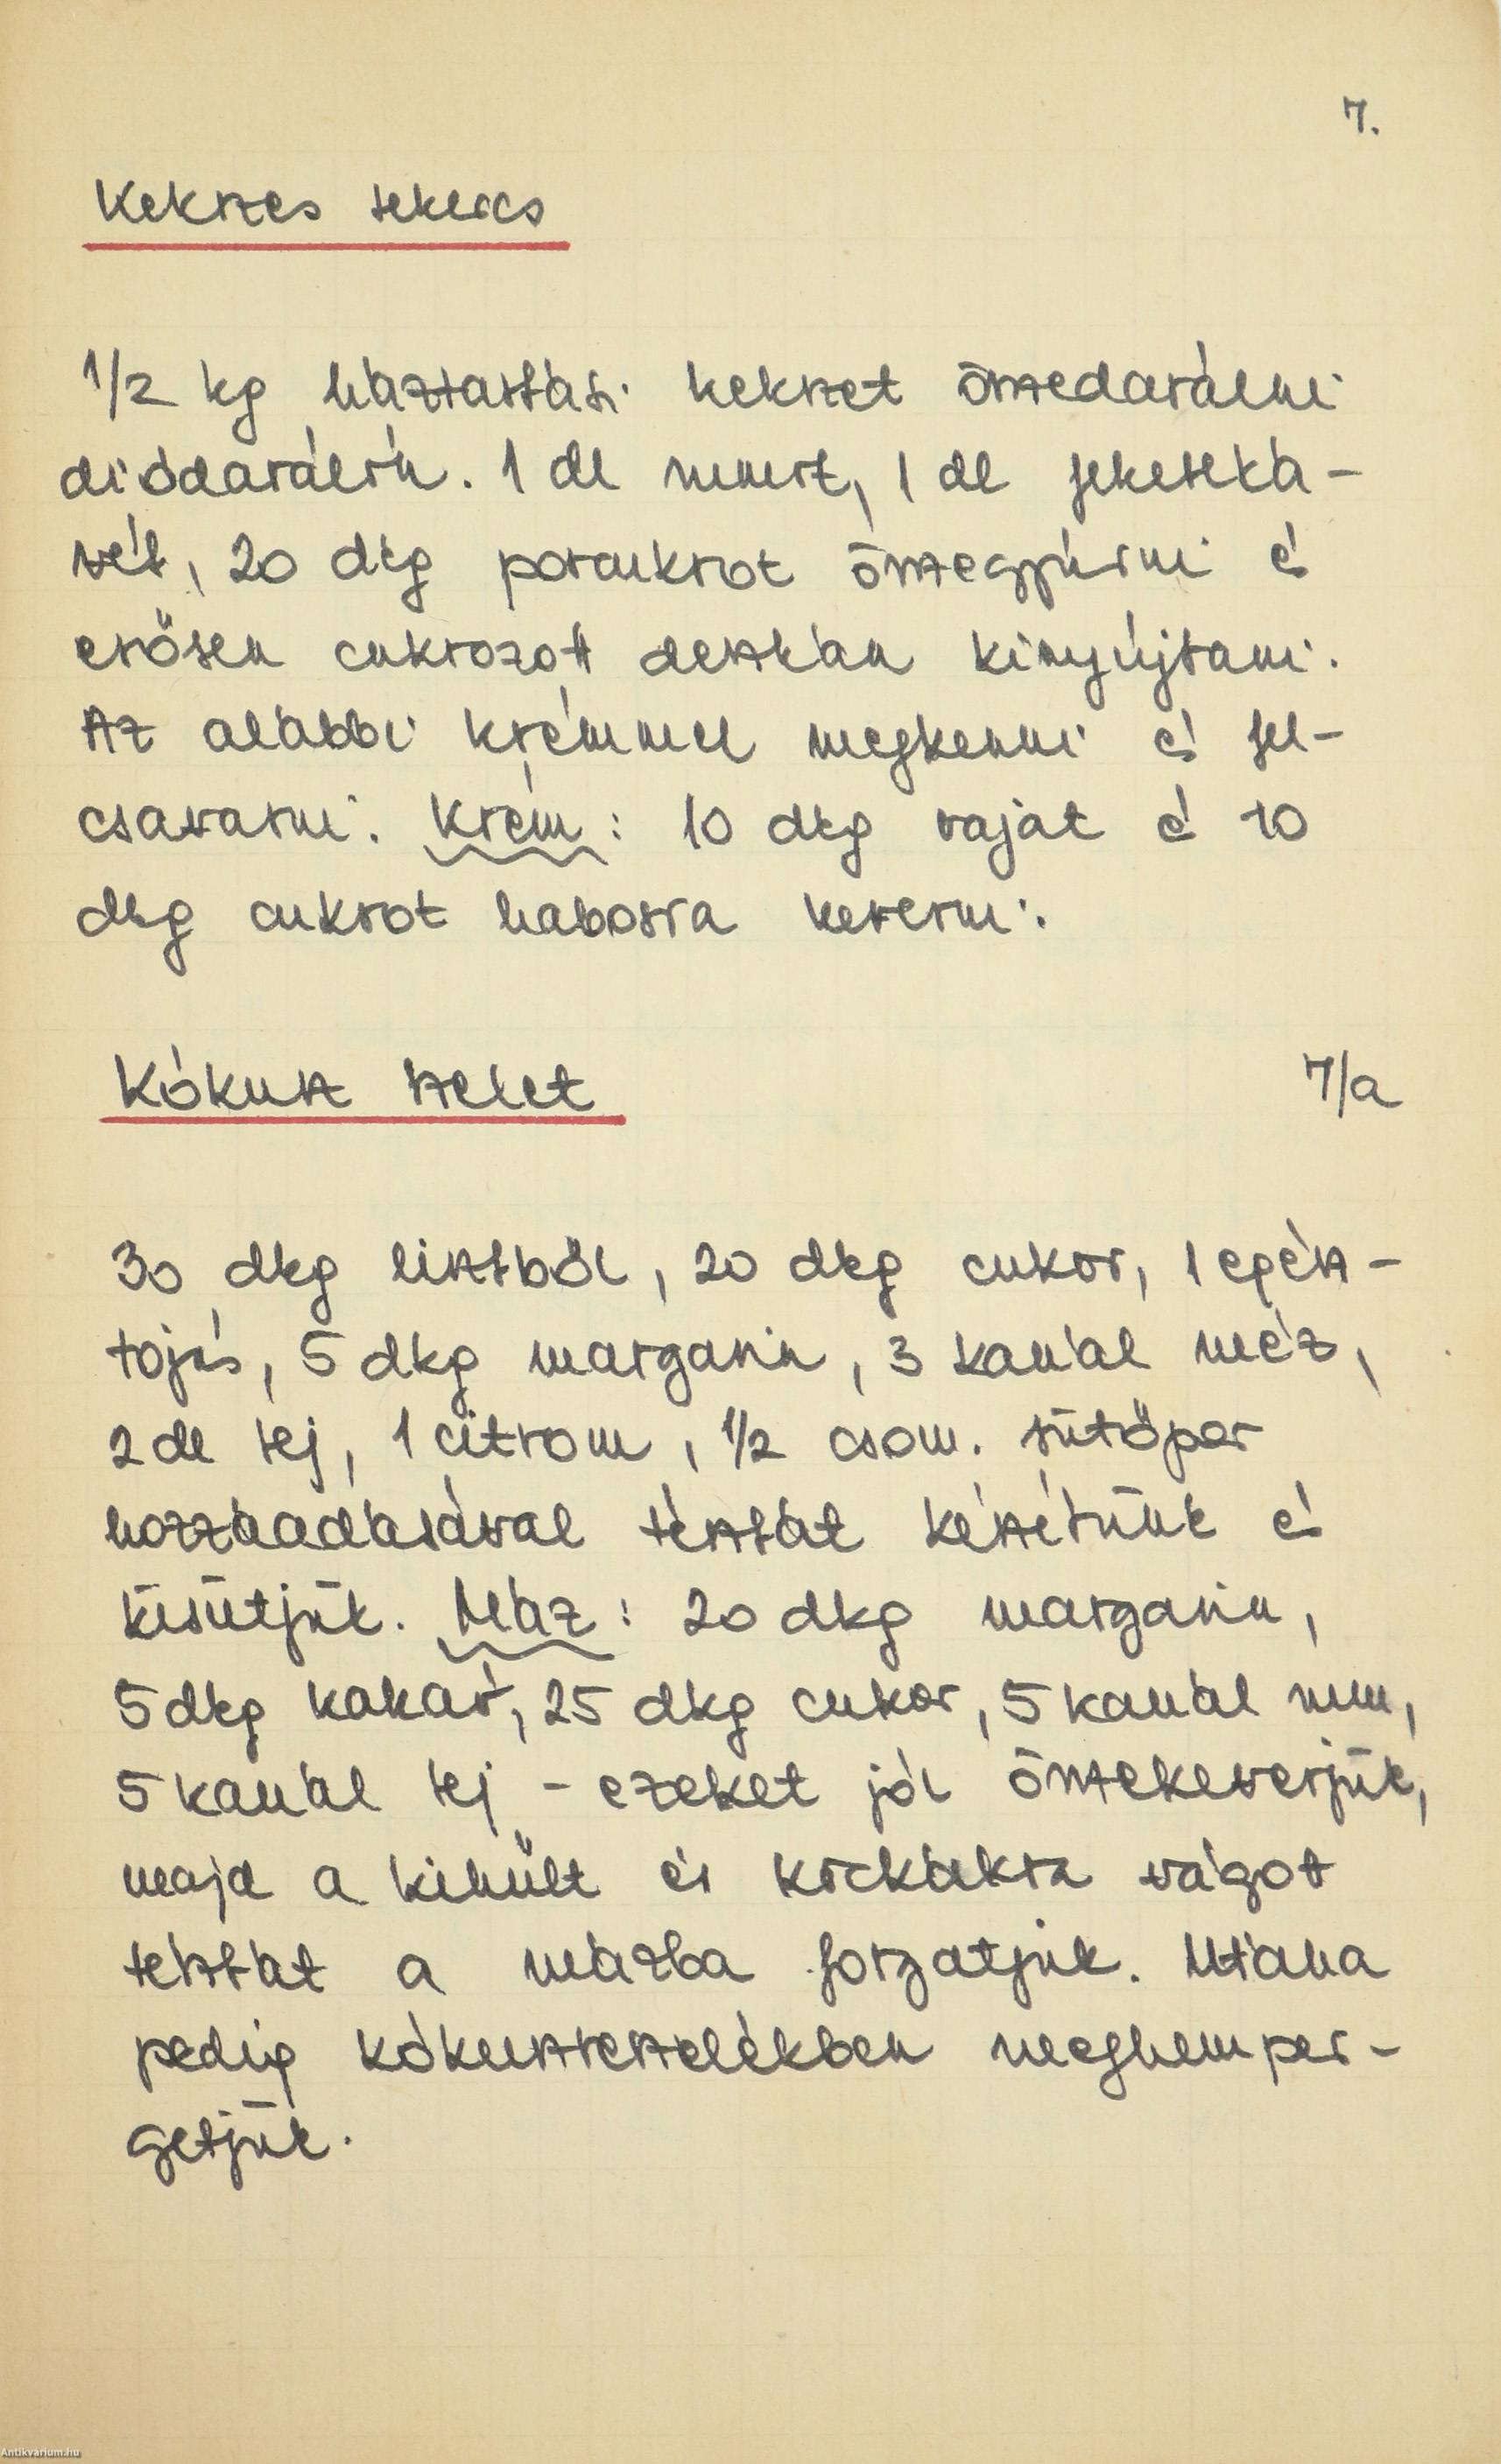 7.
Kekszes tekercs
1/2 kg háztartási kekszet összedarálni
diódarálón. 1 dl rumot, 1 dl feketeká-
vét, 20 dkg porcukrot összegyúrni és
erősen cukrozott deszkán kinyújtani.
Az alábbi krémmel megkenni és fel-
csavarni. Krém: 10 dkg vajat és 10
dkg cukrot habosra keverni.
Kókusz szelet
7/a
30 dkg lisztből, 20 dkg cukor, 1 egész-
tojás, 5 dkg margarin, 3 kanál méz,
2 dl tej, 1 citrom, 1/2 csom. sütőpor
hozzáadásával tésztát készítünk és
kisütjük. Máz: 20 dkg margarin,
5 dkg kakaó, 25 dkg cukor, 5 kanál rum,
5 kanál tej - ezeket jól összekeverjük,
majd a kihűlt és kockákra vágott
tésztát a mázba forgatjuk. Utána
pedig kókuszreszelékben meghemper-
getjük.
Antikvarium.hu